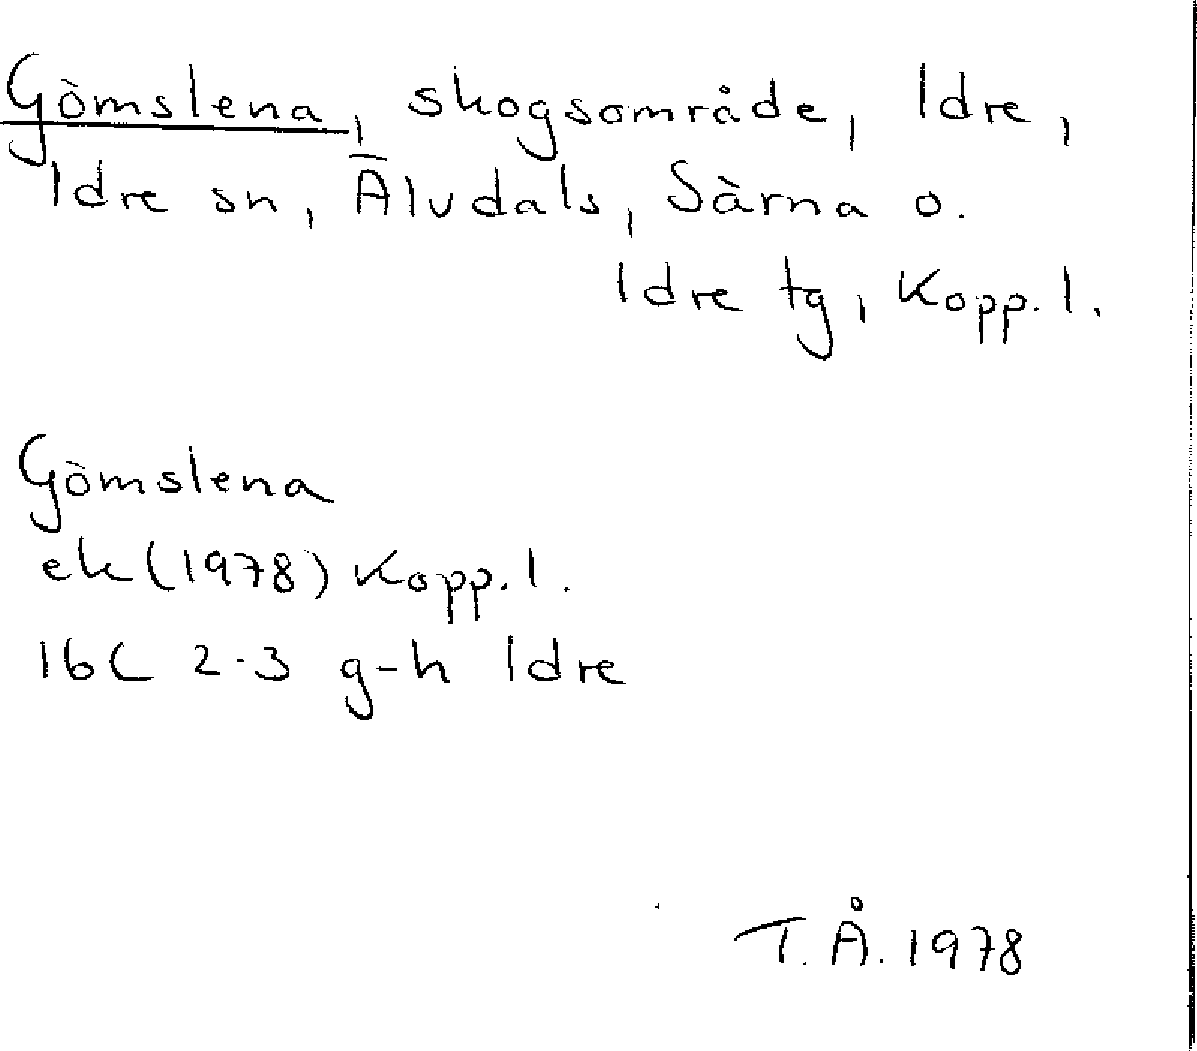 Gömslena, skogsområde, Idre,
Idre sn, Älvdals, Särna o.
Idre tg, Kopp. l.
Gömslena
ek (1978) Kopp. l.
16C 2-3 g-h Idre
T. Å. 1978